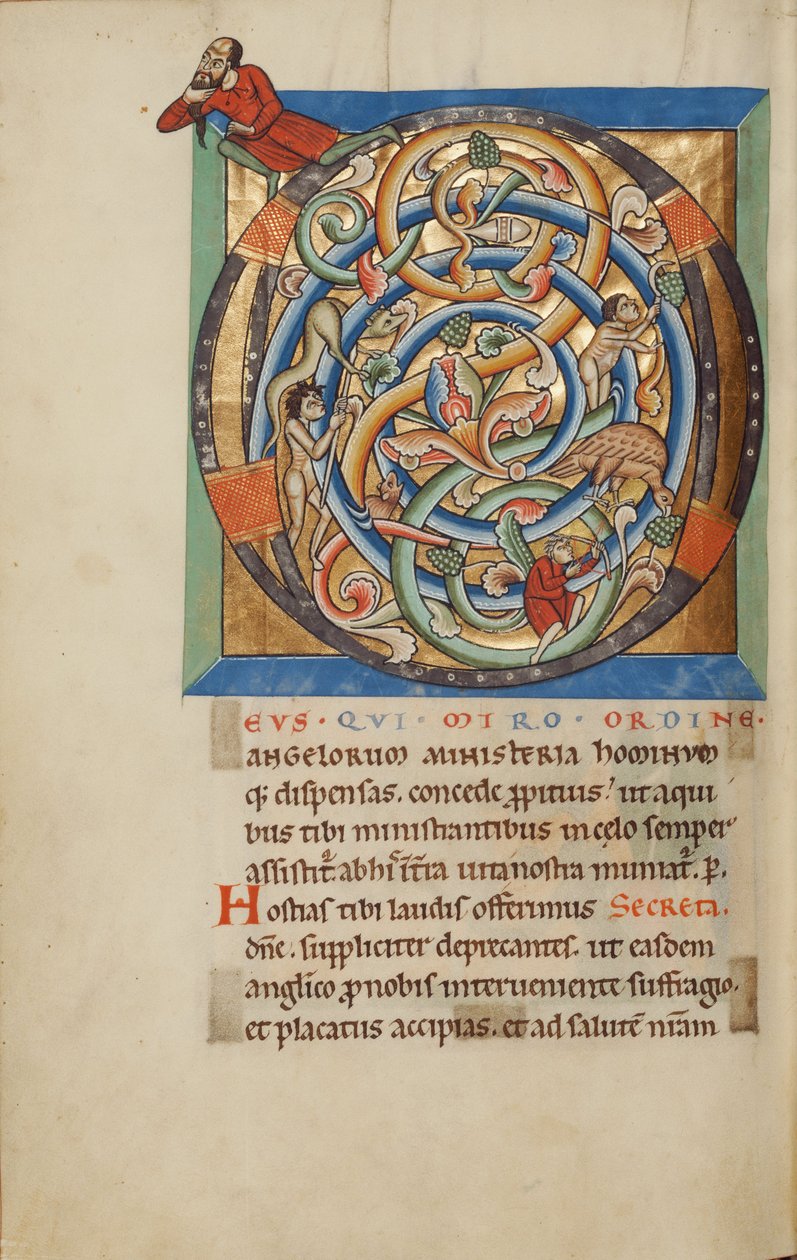 DEVS · QVI · MIRO · ORDINE ·
ANGELORUM MINISTERIA HOMINUM
q; dispensas. concede ꝓpitius! ut aqui
bus tibi ministrantibus in cęlo semper
assistit᷑. ab his ī t̄ra uita nostra muniat᷑. P̲.
Hostias tibi laudis offerimus Secreta.
dn̄e. suppliciter deprecantes. ut easdem
anglico ꝓ nobis interueniente suffragio.
et placatus accipias. et ad salutē nr̄am